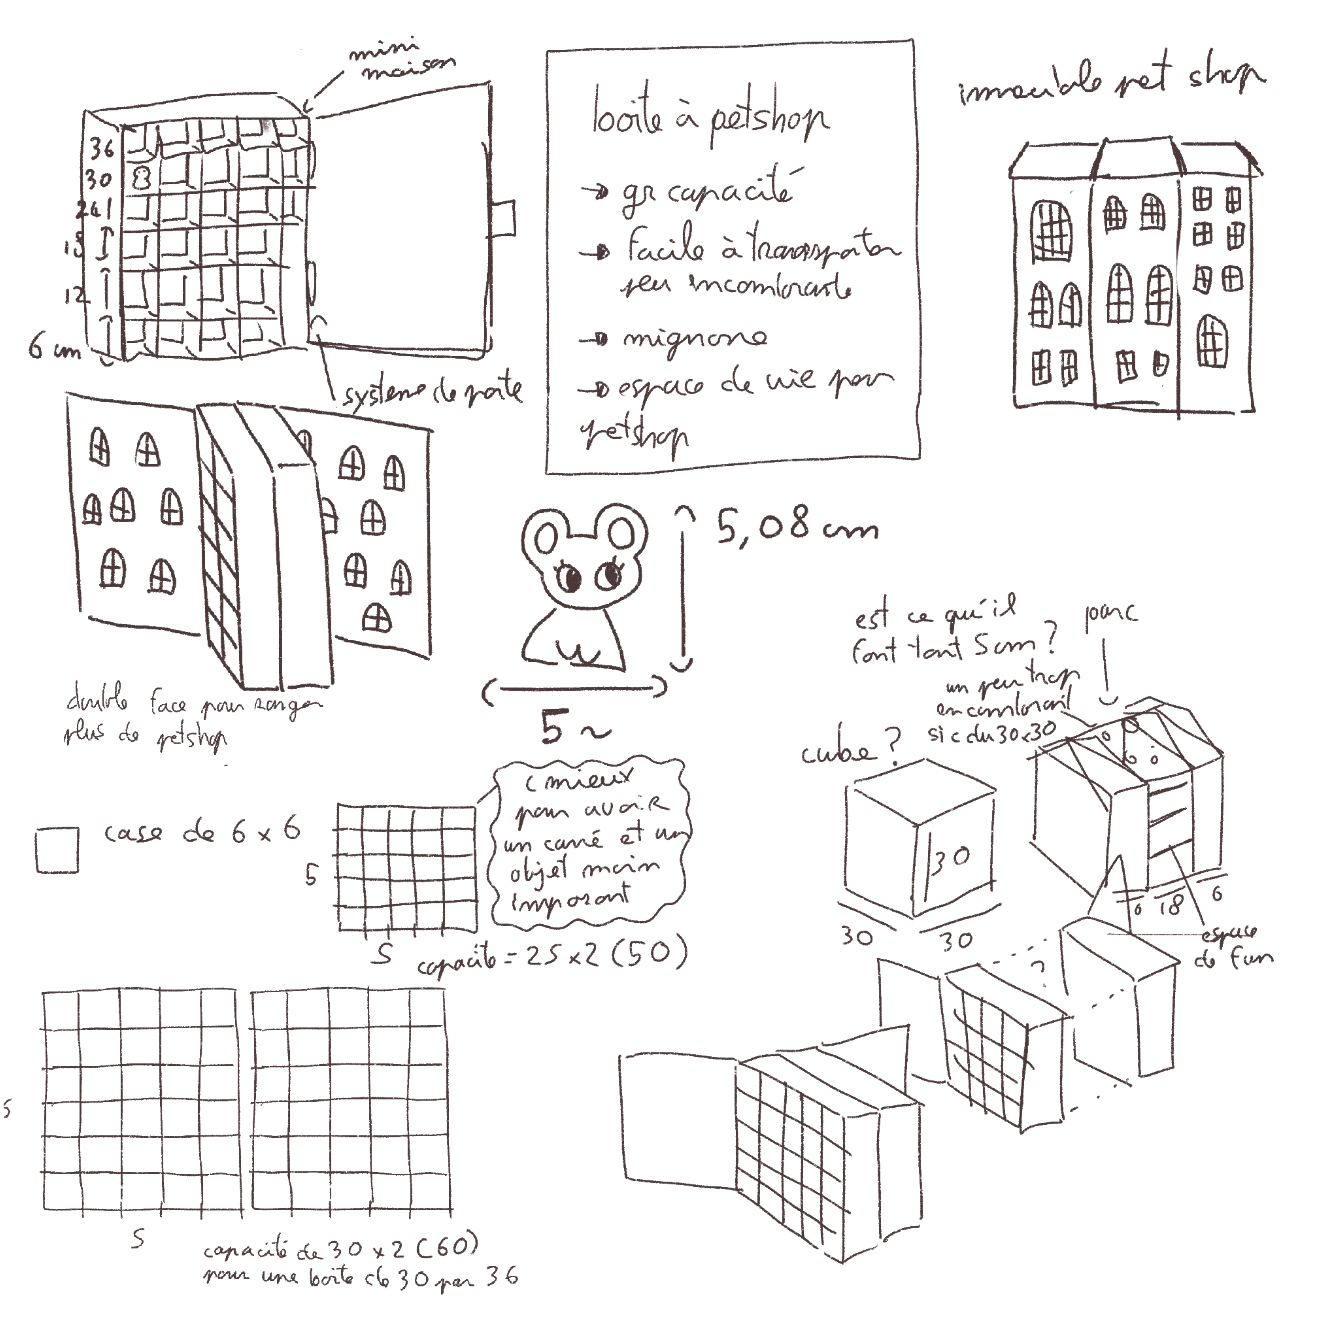 mini
maison
36
30
24
18
12
6 cm
système de porte
boite à petshop
→ gr capacité
→ facile à transporter
peu incombrante
→ mignone
→ espace de vie pour
petshop
immeuble pet shop
double face pour ranger
plus de petshop
5,08 cm
5 ~
case de 6 x 6
5
5
c mieux
pour avoir
un carré et un
objet moin
imposant
capacité = 25 x 2 (50)
5
capacité de 30 x 2 (60)
pour une boite de 30 par 36
est ce qu'il
font tant 5cm ?
parc
un peu trop
encombrant
si c du 30x30
cube ?
30
30
30
6 18 6
espace
de fun
?